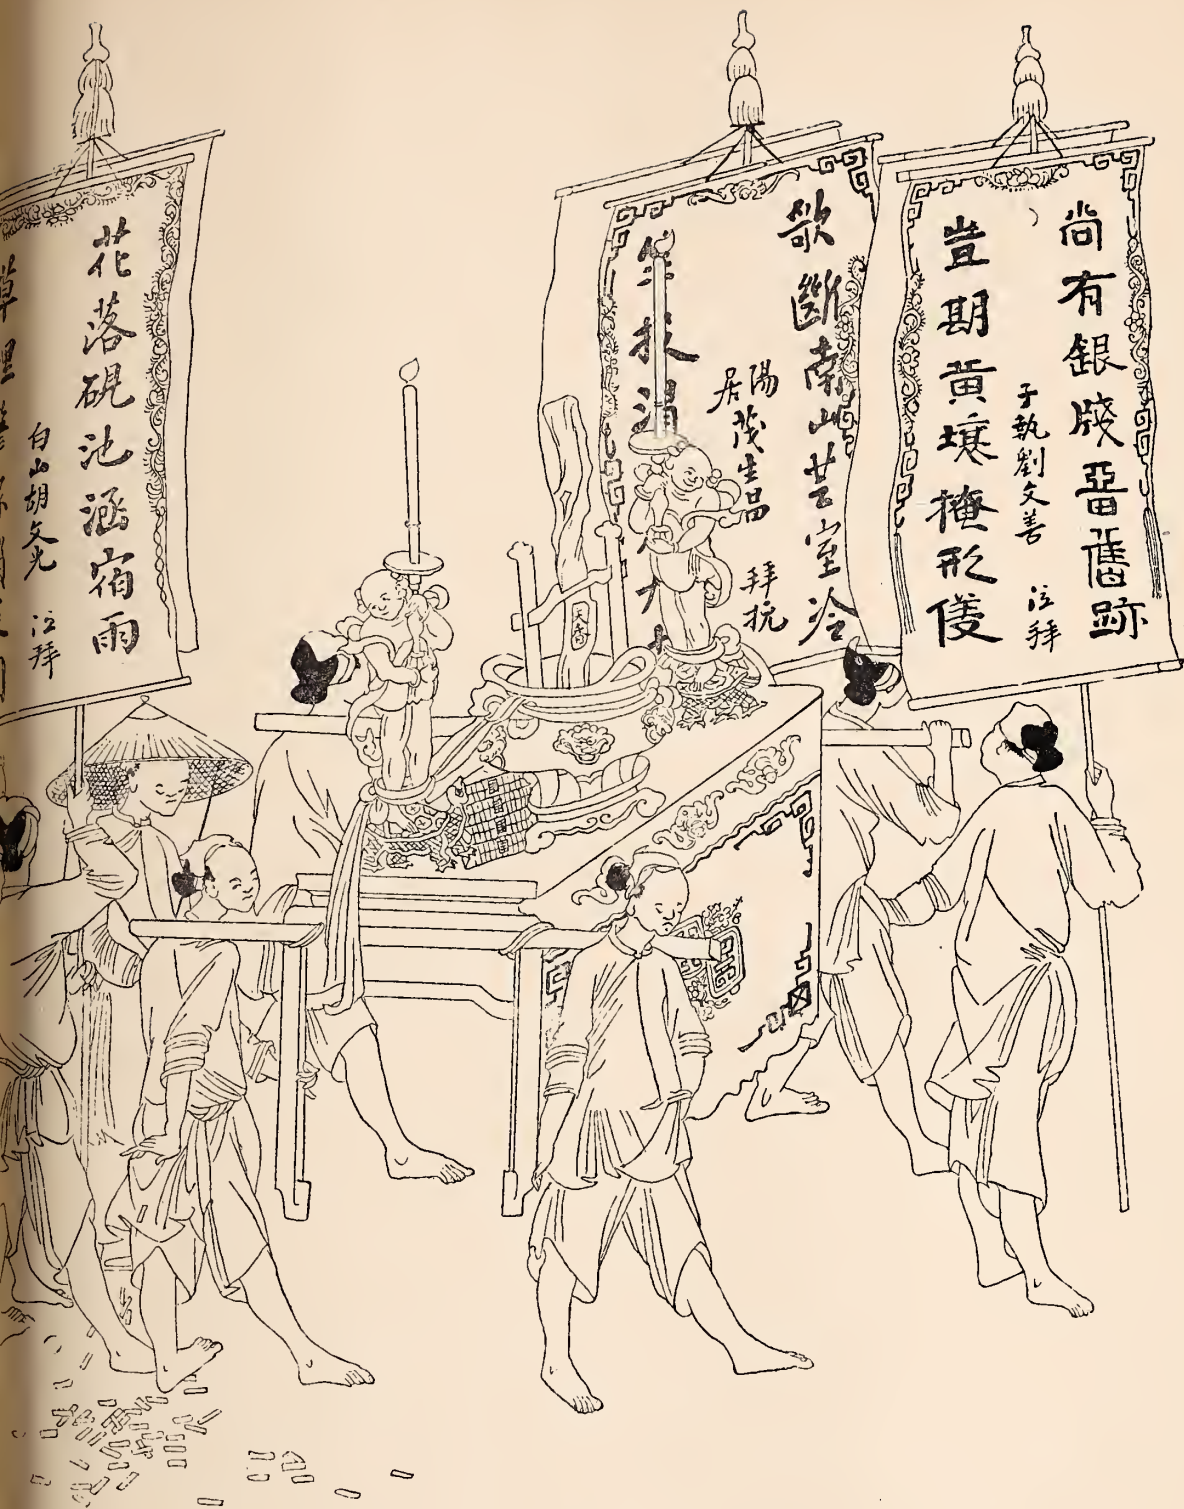 尚有銀牋畱舊跡
子執劉文善 泣拜
豈期黃壤掩形儀
歌斷南山芸室冷
陽居茂生 拜挽
天香
花落硯池涵宿雨
白山胡文光 泣拜
草